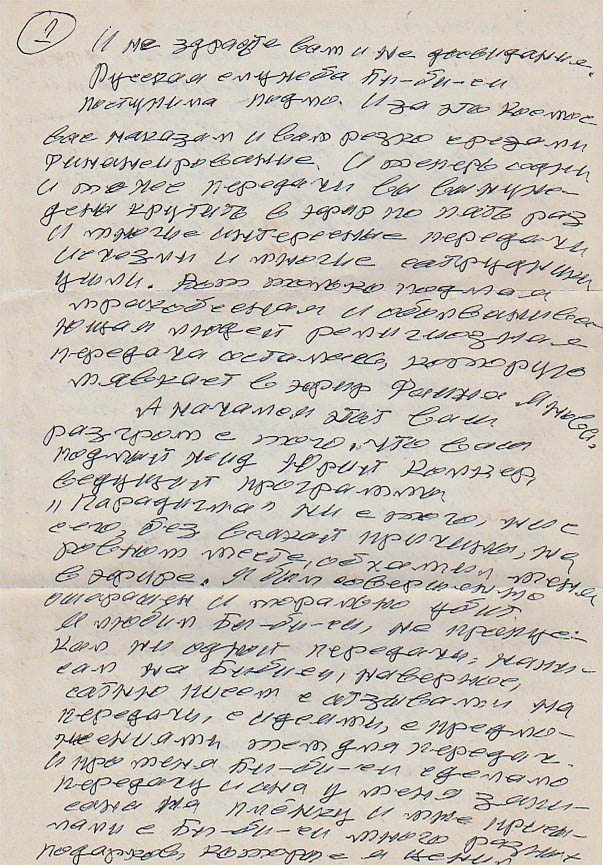 1
И не здрасте вам и не досвидание.
Русская служба Би-би-си
поступила подло. И за это космос
вас наказал и вам резко срезали
финансирование. И теперь одни
и те же передачи вы вынуж-
дены крутить в эфир по пять раз
и многие интересные передачи
исчезли и многие сатрудники
ушли. Вот только подлая
мракобесная и оболванива-
ющая людей религиозная
передача осталась, которую
тявкает в эфир Фаина Янова.
А началом этот ваш
разгром с того, что ваш
подлый жид Юрий Колкер,
ведущий программы
"Парадигма" ни с того, ни с
сего, без всякой причины, на
ровном месте, обхамил меня
в эфире. Я был совершенно
ошарашен и морально убит
Я любил Би-би-си, не пропус-
кал ни одной передачи, напи-
сал на Би-би-си, наверное,
сотню писем с отзывами на
передачи, с идеями, с предло-
жениями тем для передач.
И про меня Би-би-си сделало
передачу и она у меня запи-
сана на плёнку и мне присы-
лали с Би-би-си много разных
подарков, которые я ценил